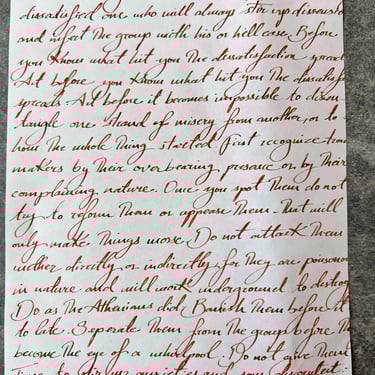 dissatisfied one who will always stir up dissension
and infect the group with his or hell ease. Before
you know what hit you the dissatisfaction spreads
Act before you know what hit you the dissatisfa
spreads. Act before it becomes impossible to disen
tangle one strand of misery from another, or to
how the whole thing started. First recognize trou
makers by their overbearing presence or by their
complaining nature. Once you spot them do not
try to reform them or appease them - that will
only make things worse. Do not attack them
wether directly or indirectly, for they are poisonous
in nature and will work underground to destroy
Do as the Athenians did, Banish them before it
to late. Seperate them from the group before th
become the eye of a whirlpool. Do not give them
time to stir up anxieties and sow discontent: